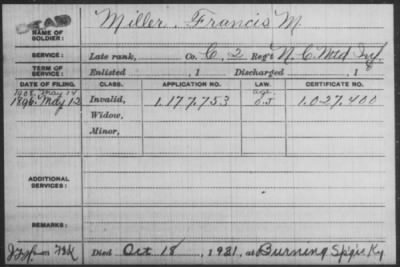 NAME OF SOLDIER: Miller, Francis M.
SERVICE: Late rank, Co. C, 2 Reg't N.C. Mtd Inf.
TERM OF SERVICE: Enlisted , 1 Discharged , 1
DATE OF FILING. CLASS. APPLICATION NO. LAW. CERTIFICATE NO.
1908. May 14 age.
1896. May 12 Invalid, 1.177.753 1.027.400
Widow,
Minor,
ADDITIONAL SERVICES:
REMARKS:
Died Oct 18, 1921, at Burning Sp'gs Ky